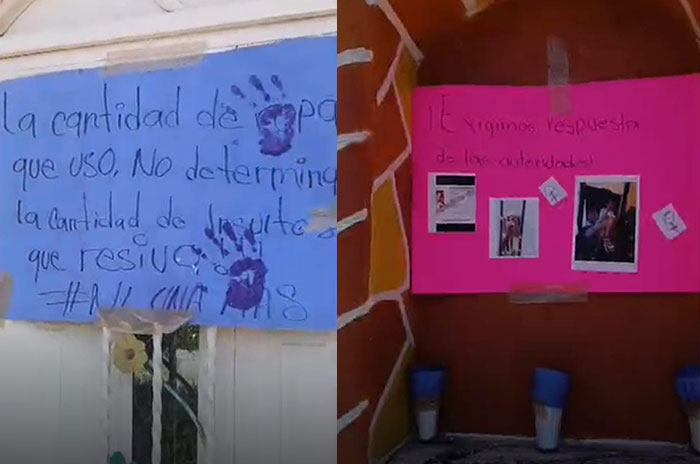 La cantidad de ropa
que uso. No determina
la cantidad de Insultos
que resiva.
#NI UNA MAS
¡Exigimos respuesta
de las autoridades!